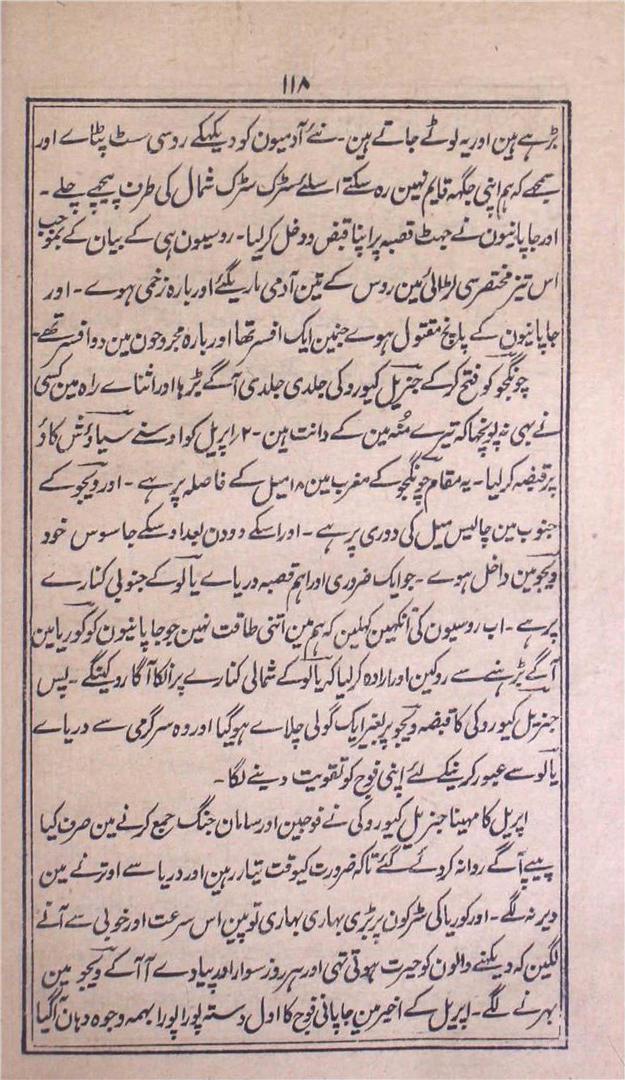 ۱۱۸
بڑہے ہین اور یہ لوٹے جاتے ہین۔ نئے آدمیون کو دیکہکے روسی سٹ پٹاے اور
سمجہے کہ ہم اپنی جگہہ قایم نہین رہ سکتے اسلئے سٹرک سٹرک شمال کی طرف پیچہے چلے۔
اور جاپانیون نے جہٹ قصبہ پر اپنا قبض و دخل کر لیا۔ روسیون ہی کے بیان کے بموجب
اس تیز مختصر سی لڑائی مین روس کے تین آدمی مارے گئے اور بارہ زخمی ہوے۔ اور
جاپانیون کے پانچ مقتول ہوے جنین ایک افسر تہا اور بارہ مجروحون مین دو افسر تہے۔
چونگجو کو فتح کر کے جنریل کیوروکی جلدی جلدی آگے بڑہا اور اثناے راہ مین کسی
نے بہی نہ پونچہا کہ تیرے منہ مین کے دانت ہین۔ ۲/ اپریل کو اوسنے سیاؤش کاؤ
پر قبضہ کر لیا۔ یہ مقام چونگجو کے مغرب مین ۱۸ میل کے فاصلہ پر ہے۔ اور ویجو کے
جنوب مین چالیس میل کی دوری پر ہے۔ اور اسکے دو دن بعد اوسکے جاسوس خود
ویجو مین داخل ہوے۔ جو ایک ضروری اور اہم قصبہ دریاے یالو کے جنوبی کنارے
پر ہے۔ اب روسیون کی آنکہین کہلین کہ ہم مین اتنی طاقت نہین جو جاپانیون کو کوریا مین
آگے بڑہنے سے روکین اور ارادہ کر لیا کہ یالو کے شمالی کنارے پر انکا آگا روکینگے۔ پس
جنریل کیوروکی کا قبضہ ویجو پر بغیر ایک گولی چلاے ہو گیا اور وہ سرگرمی سے دریاے
یالو سے عبور کرنیکے لئے اپنی فوج کو تقویت دینے لگا۔
اپریل کا مہینا جنریل کیوروکی نے فوجین اور سامان جنگ جمع کرنے مین صرف کیا
پیپے آگے روانہ کر دئے گئے تا کہ ضرورت کیوقت تیار رہین اور دریا سے اوترنے مین
دیر نہ لگے۔ اور کوریا کی سٹرکون پر بڑی بہاری بہاری توپین اس سرعت اور خوبی سے آنے
لگین کہ دیکہنے والون کو حیرت ہوتی تہی اور ہر روز سوار اور پیادے آ آ کے ویجو مین
بہرنے لگے۔ اپریل کے اخیر مین جاپانی فوج کا اول دستہ پورا پورا بہمہ وجوہ وہان آگیا